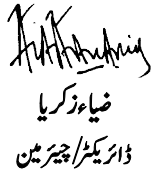 ضیاء زکریا
ڈائریکٹر/چیئرمین